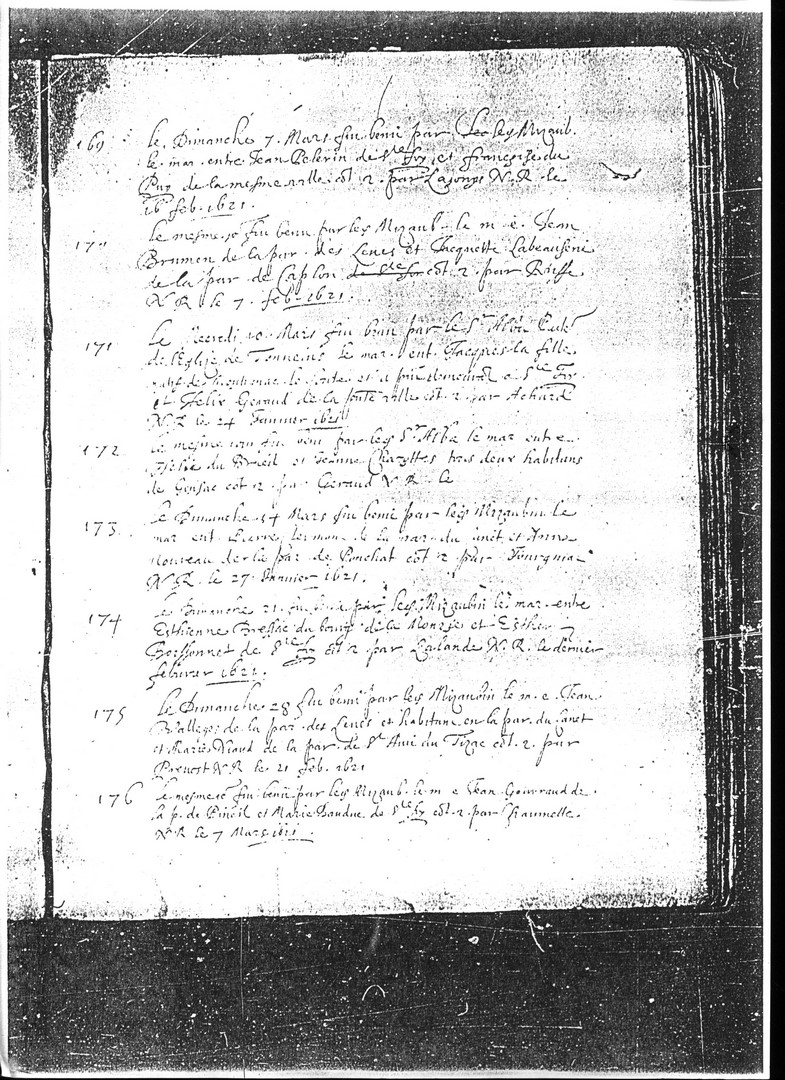 169 le Dimanche 7 Mars fut beni par le sr Mizaub.
le mar. entre Jean Pelerin de Ste foy et françoise du
Puy de la mesme ville cot 2 par Lajonye N.R. le
16 feb. 1621.
170 le mesme jo fut beni par le sr Mizaub. le m. e. Jean
Brumen de la par. des Leves et Jacquette Labeausene
de la par de Caplon cot. 2 par Russe
N R le 7. feb. 1621.
171 Le 10 Mars fut beni par le Sr Albe
de l'Eglise de Tonneins le mar. ent. Jacques la fille
a Ste Foy
et Felix Geraud de la ville cot. 2 par Achard
N.R. le 24 Janvier 1621
172 le mesme jour fut beni par le sr Albe le mar entre
Helie du Brieil et Jeanne Charottes tous deux habitans
de Gensac cot 2 par Geraud N. R. le
173 le Dimanche 14 Mars fut beni par le sr Mizaubin le
mar ent. Pierre de la par. du Canet et Anne
nouveau de la par de Ponchat cot 2 par Fourgniac
N.R. le 27. Janvier 1621.
174 le Dimanche 21. fut beni par le sr Mizaubin le mar. entre
Esthienne Bressac du bourg de la Monzie et Esther
Boissonnet de Ste foy cot 2 par Lalande N.R. le dernier
febvrier 1621.
175 le Dimanche 28 fut beni par le sr Mizaubin le m. e. Jean
Valleges de la par. des Leves et habitant en la par. du Canet
et Marie Niaud de la par. de St Avi du Tizac cot. 2. par
Prevost N.R le 21 feb. 1621
176 le mesme jo fut beni par le sr Mizaub. le m e Jean Gouvraud de
la p. de Pineil et Marie Baudue de Ste foy cot. 2 par Chaumette
N.R le 7 Mars 1621.